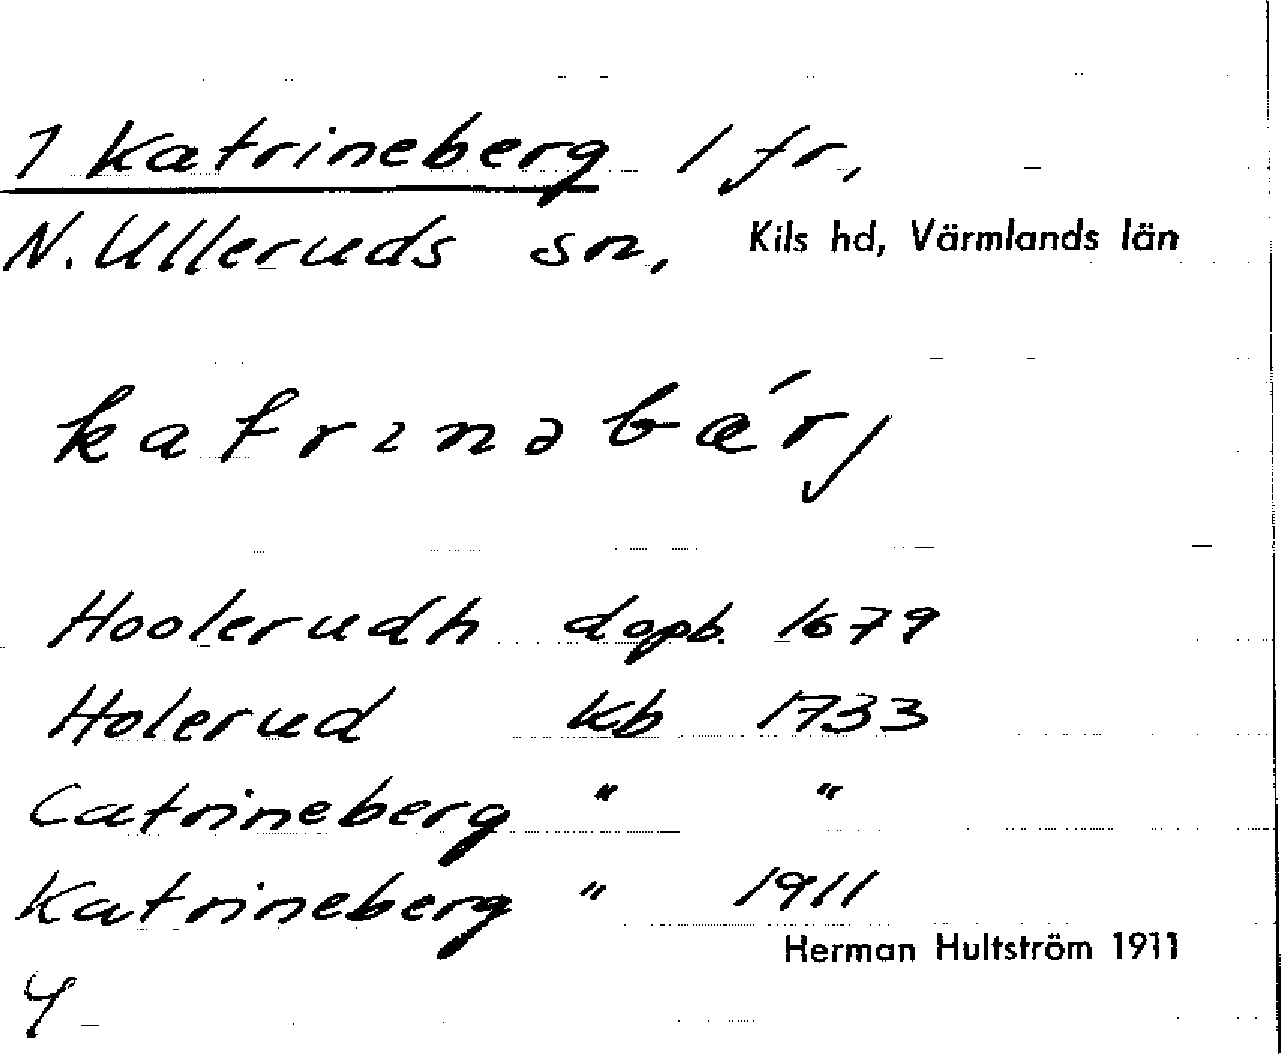 1 Katrineberg 1 fr,
N. Ulleruds sn, Kils hd, Värmlands län
katrɪnəbǽrj
Hoolerudh dopb. 1679
Holerud kb 1733
Catrineberg " "
Katrineberg " 1911
Herman Hultström 1911
4